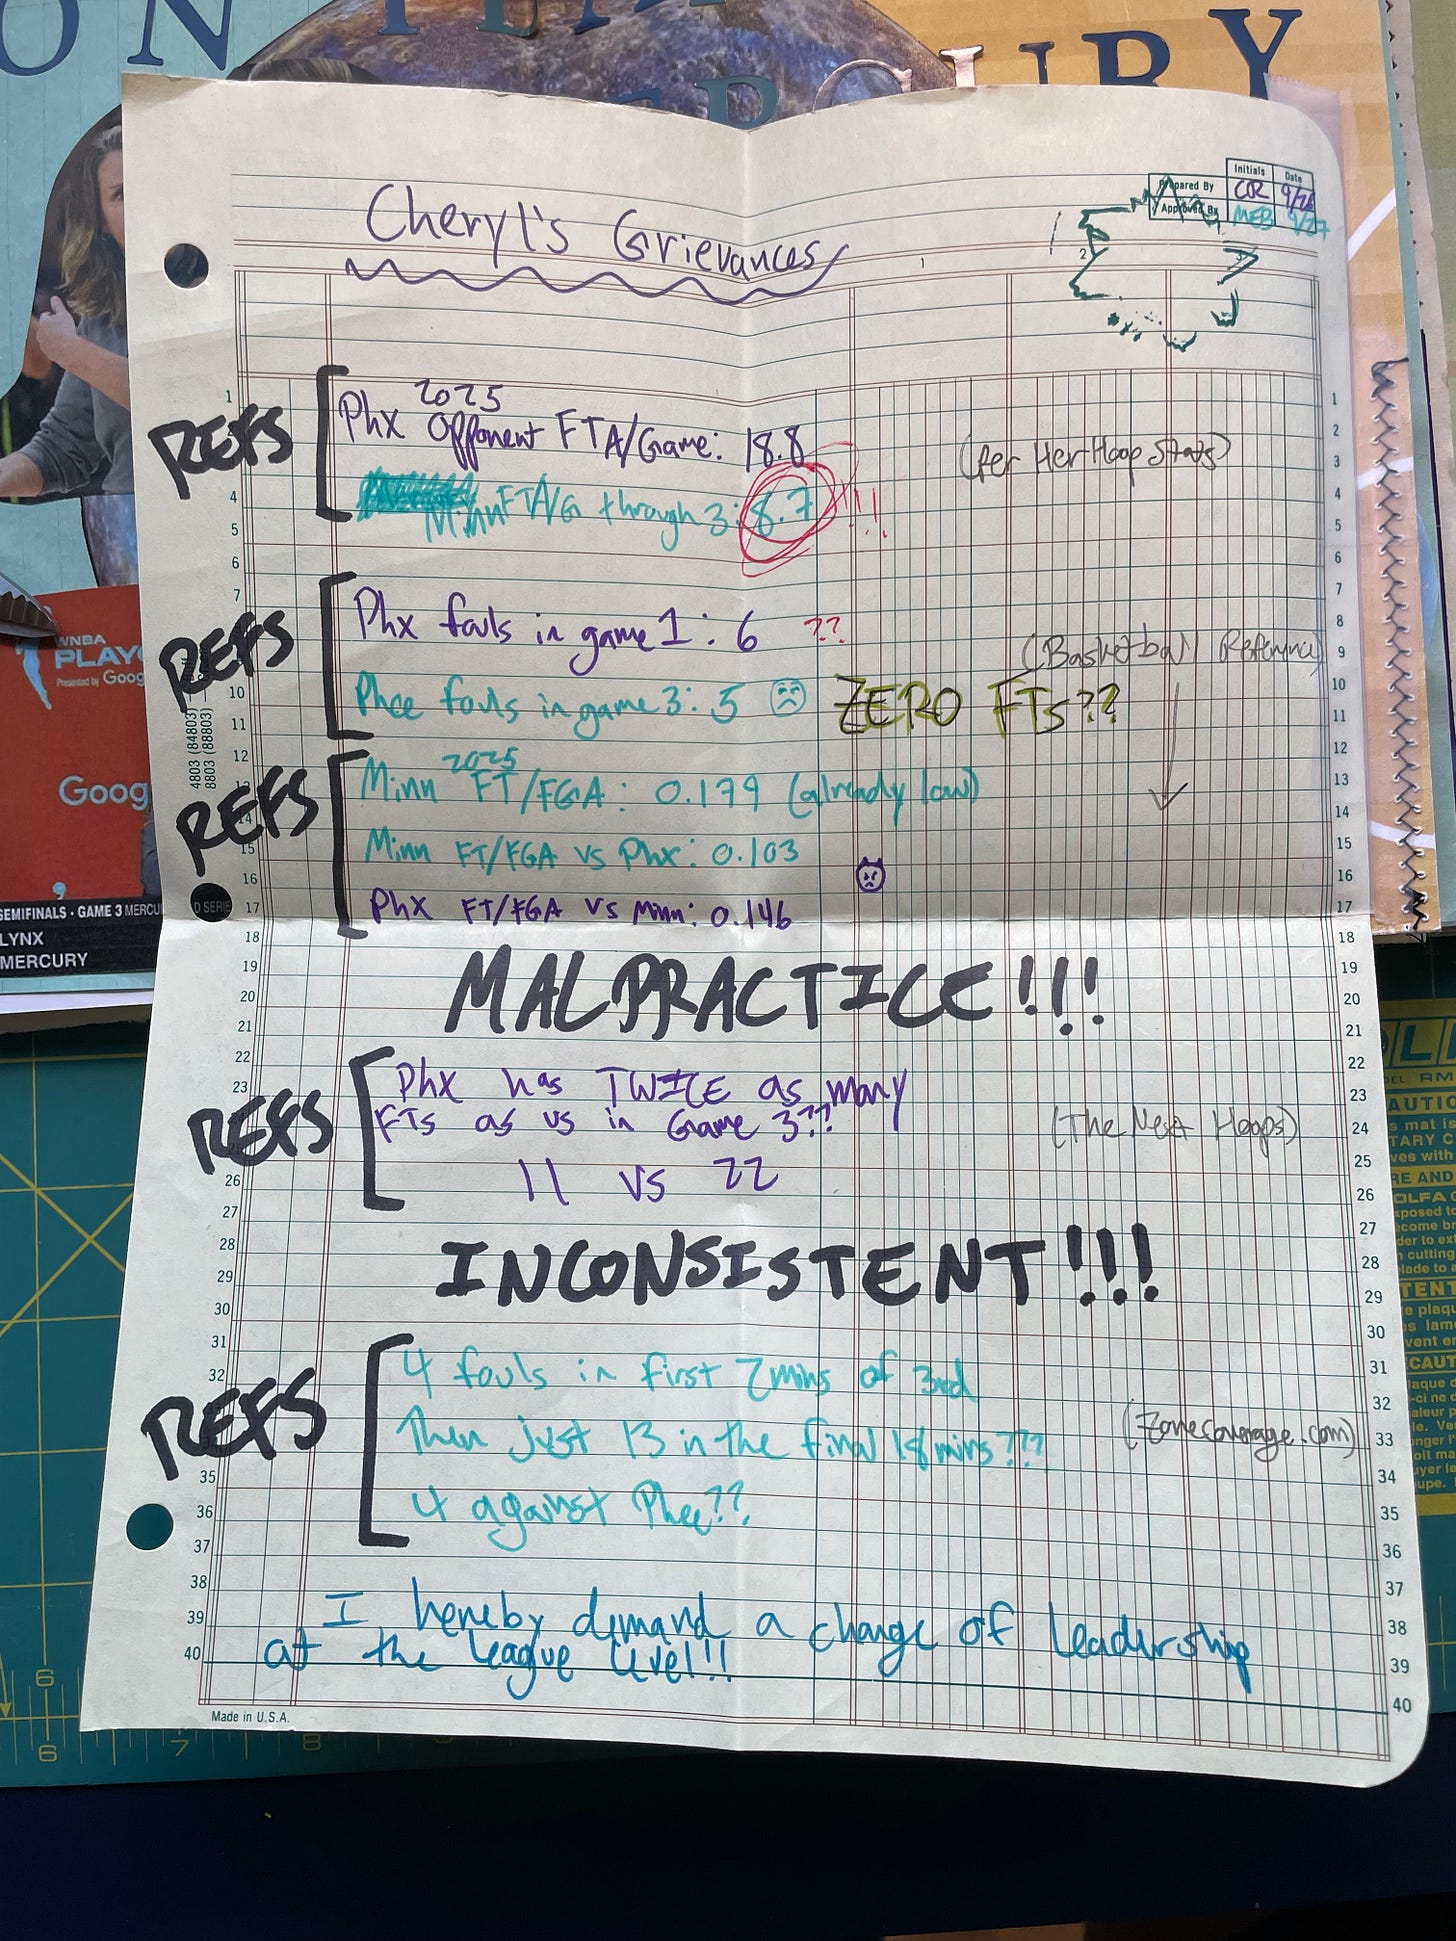 Initials Date
Prepared By COR 9/26
Approved By MEB 9/27
Cheryl's Grievances
1
2
REFS
2025
Phx Opponent FTA/Game: 18.8
(Per HerHoopStats)
Minn FTA/G through 3: 8.7 !!!
REFS
Phx fouls in game 1: 6 ??
(Basketball Reference)
Phee fouls in game 3: 5 ZERO FTs??
REFS
2025
Minn FT/FGA: 0.179 (already low)
Minn FT/FGA vs Phx: 0.103
Phx FT/FGA vs Minn: 0.146
MALPRACTICE!!!
REFS
Phx has TWICE as many
FTs as us in Game 3??
(The Next Hoops)
11 vs 22
INCONSISTENT!!!
REFS
4 fouls in first 7 mins of 3rd
Then just 13 in the final 18 mins???
(Zonecoverage.com)
4 against Phee??
I hereby demand a change of leadership
at the league level!!
Made in U.S.A.
1
2
3
4
5
6
7
8
9
10
11
12
13
14
15
16
17
18
19
20
21
22
23
24
25
26
27
28
29
30
31
32
33
34
35
36
37
38
39
40
4803 (84803)
8803 (88803)
D SERIE
WNBA
PLAY
Presented by Goog
Goog
SEMIFINALS • GAME 3 MERCU
LYNX
MERCURY
URY
6
6
7
8